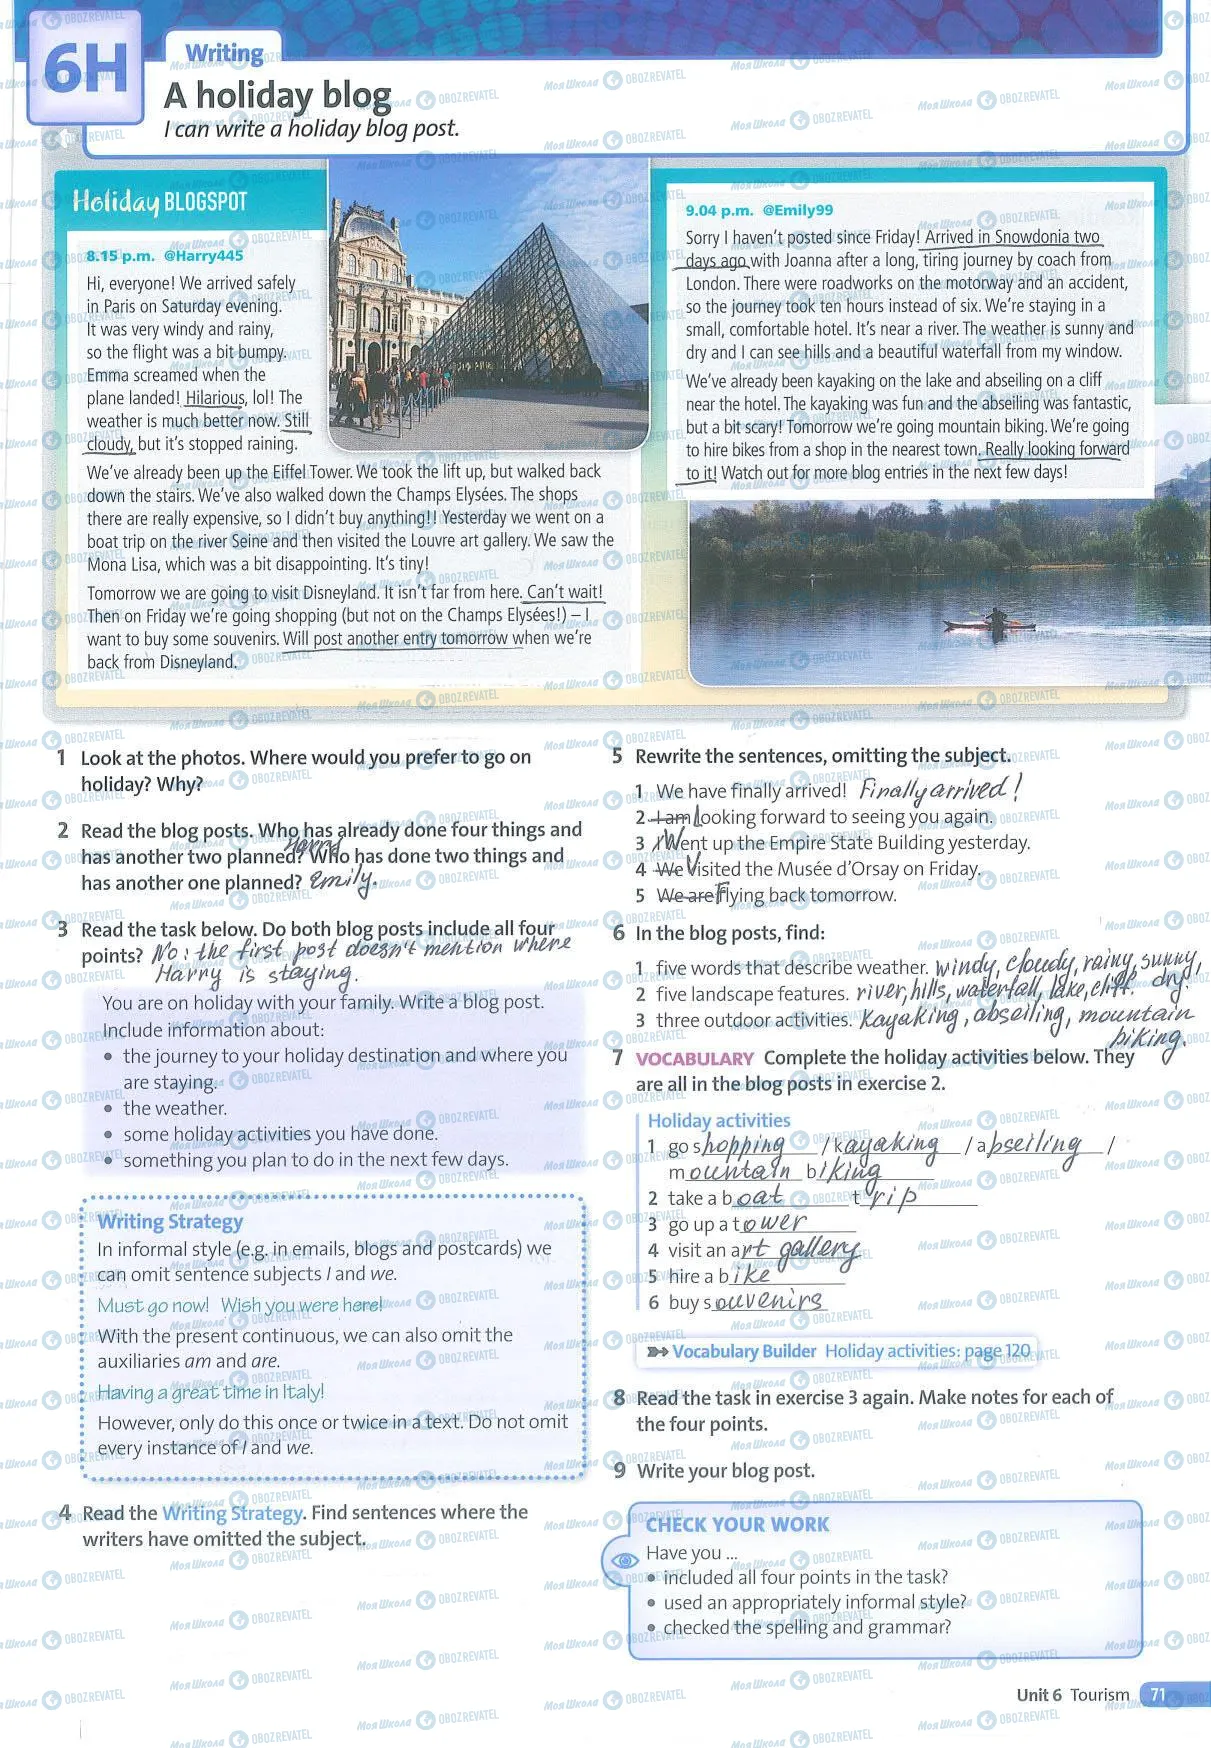 6H
Writing
A holiday blog
I can write a holiday blog post.
Holiday BLOGSPOT
8.15 p.m. @Harry445
Hi, everyone! We arrived safely
in Paris on Saturday evening.
It was very windy and rainy,
so the flight was a bit bumpy.
Emma screamed when the
plane landed! Hilarious, lol! The
weather is much better now. Still
cloudy, but it's stopped raining.
We've already been up the Eiffel Tower. We took the lift up, but walked back
down the stairs. We've also walked down the Champs Elysées. The shops
there are really expensive, so I didn't buy anything!! Yesterday we went on a
boat trip on the river Seine and then visited the Louvre art gallery. We saw the
Mona Lisa, which was a bit disappointing. It's tiny!
Tomorrow we are going to visit Disneyland. It isn't far from here. Can't wait!
Then on Friday we're going shopping (but not on the Champs Elysées!) – I
want to buy some souvenirs. Will post another entry tomorrow when we're
back from Disneyland.
9.04 p.m. @Emily99
Sorry I haven't posted since Friday! Arrived in Snowdonia two
days ago with Joanna after a long, tiring journey by coach from
London. There were roadworks on the motorway and an accident,
so the journey took ten hours instead of six. We're staying in a
small, comfortable hotel. It's near a river. The weather is sunny and
dry and I can see hills and a beautiful waterfall from my window.
We've already been kayaking on the lake and abseiling on a cliff
near the hotel. The kayaking was fun and the abseiling was fantastic,
but a bit scary! Tomorrow we're going mountain biking. We're going
to hire bikes from a shop in the nearest town. Really looking forward
to it! Watch out for more blog entries in the next few days!
1 Look at the photos. Where would you prefer to go on
holiday? Why?
2 Read the blog posts. Who has already done four things and
has another two planned? Harry Who has done two things and
has another one planned? Emily.
3 Read the task below. Do both blog posts include all four
points? No: the first post doesn't mention where
Harry is staying.
You are on holiday with your family. Write a blog post.
Include information about:
• the journey to your holiday destination and where you
are staying.
• the weather.
• some holiday activities you have done.
• something you plan to do in the next few days.
Writing Strategy
In informal style (e.g. in emails, blogs and postcards) we
can omit sentence subjects I and we.
Must go now! Wish you were here!
With the present continuous, we can also omit the
auxiliaries am and are.
Having a great time in Italy!
However, only do this once or twice in a text. Do not omit
every instance of I and we.
4 Read the Writing Strategy. Find sentences where the
writers have omitted the subject.
5 Rewrite the sentences, omitting the subject.
1 We have finally arrived! Finally arrived!
2 I am Looking forward to seeing you again.
3 I Went up the Empire State Building yesterday.
4 We Visited the Musée d'Orsay on Friday.
5 We are Flying back tomorrow.
6 In the blog posts, find:
1 five words that describe weather. windy, cloudy, rainy, sunny, dry.
2 five landscape features. river, hills, waterfall, lake, cliff.
3 three outdoor activities. Kayaking, abseiling, mountain
biking.
7 VOCABULARY Complete the holiday activities below. They
are all in the blog posts in exercise 2.
Holiday activities
1 go shopping / kayaking / abseiling /
mountain biking
2 take a boat trip
3 go up a tower
4 visit an art gallery
5 hire a bike
6 buy souvenirs
Vocabulary Builder Holiday activities: page 120
8 Read the task in exercise 3 again. Make notes for each of
the four points.
9 Write your blog post.
CHECK YOUR WORK
Have you ...
• included all four points in the task?
• used an appropriately informal style?
• checked the spelling and grammar?
Unit 6 Tourism 71
Моя Школа OBOZREVATEL